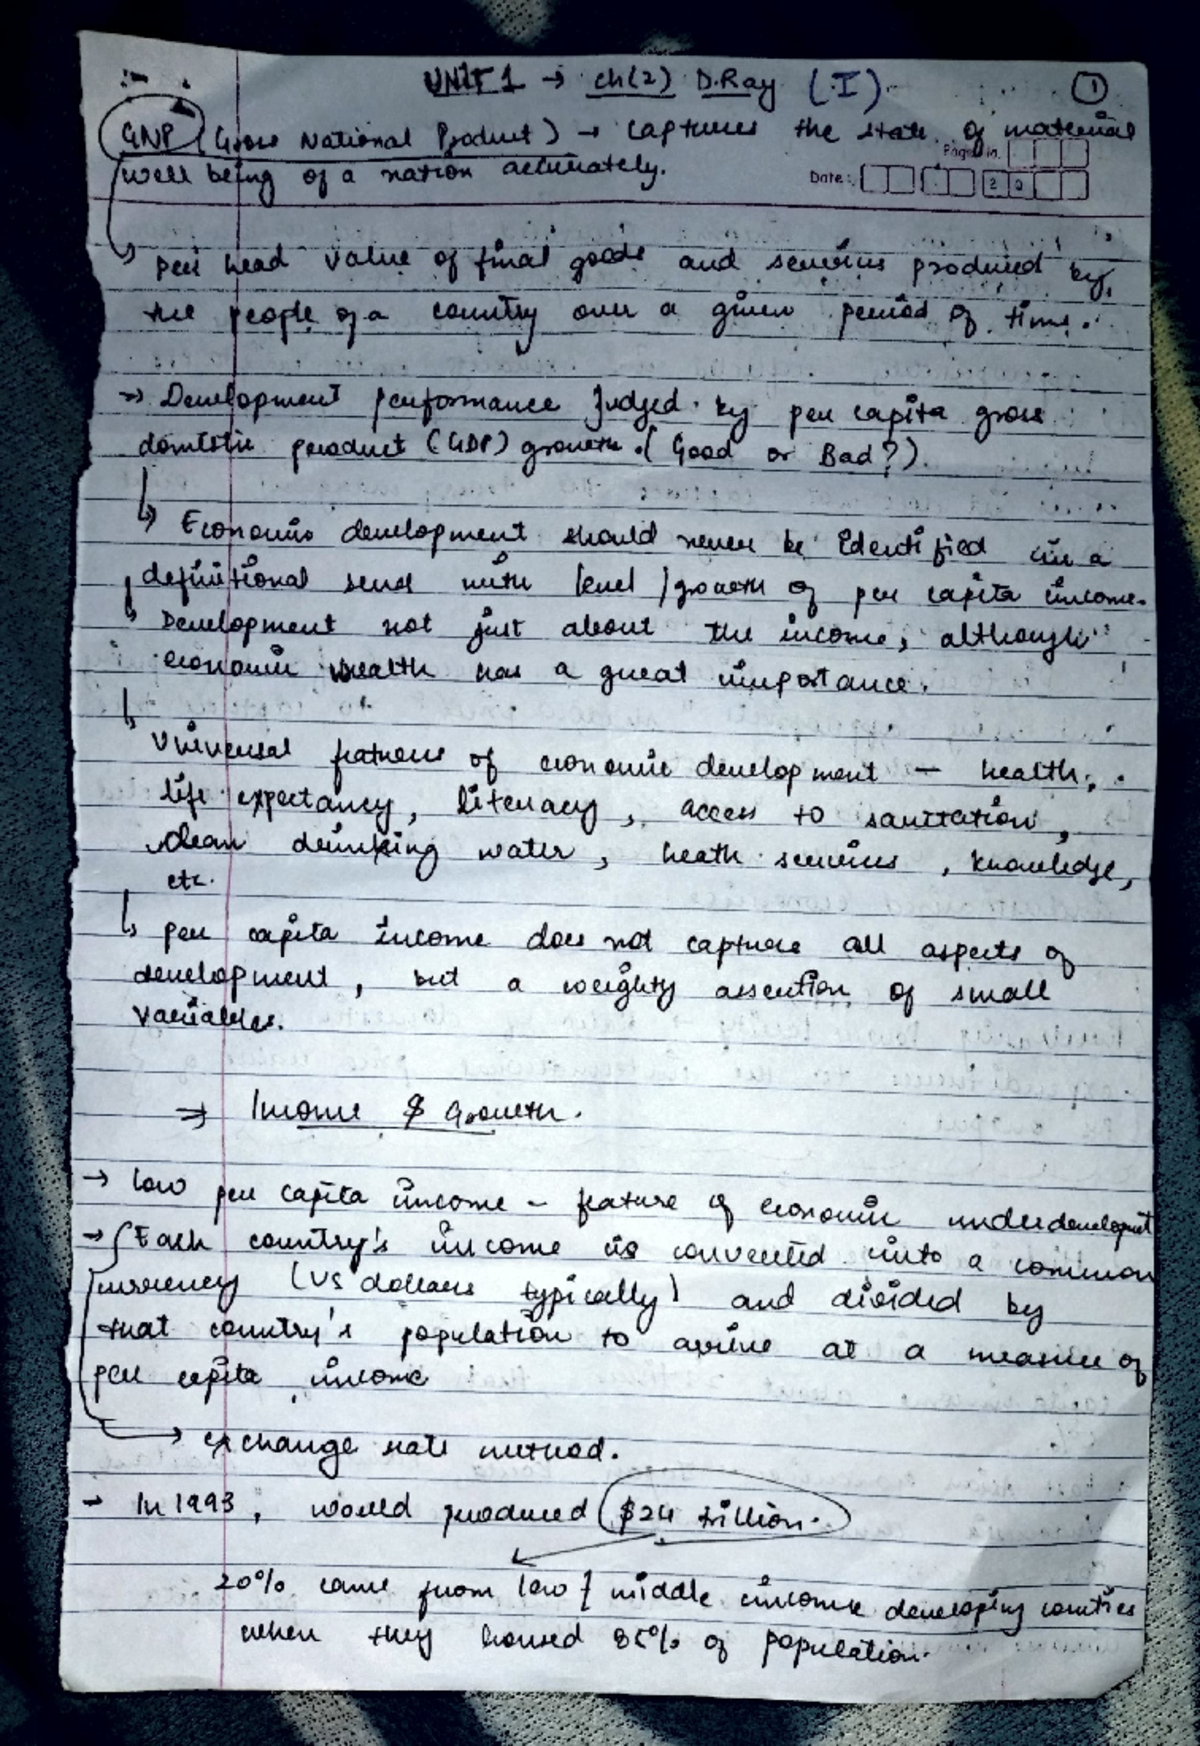 UNIT 1 → ch(2) D.Ray (I) 1
GNP (Gross National Product) → captures the state of material
Page No.
well being of a nation accurately.
Date: 20
per head value of final goods and services produced by
the people of a country over a given period of time.
⇒ Development performance judged by per capita gross
domestic product (GDP) growth. (Good or Bad?).
↳ Economic development should never be identified in a
definitional sense with level / growth of per capita income.
↳ Development not just about the income, although
economic wealth has a great importance.
↳ Universal features of economic development – health,
life expectancy, literacy, access to sanitation,
clean drinking water, heath services, knowledge,
etc.
↳ per capita income does not capture all aspects of
development, but a weighty assertion of small
variables.
⇒ Income & Growth.
→ Low per capita income – feature of economic underdevelopment
→ Each country's income is converted into a common
currency (US dollars typically) and divided by
that country's population to arrive at a measure of
per capita income
→ exchange rate method.
→ In 1993, world produced $24 trillion.
20% came from low & middle income developing countries
when they housed 85% of population.